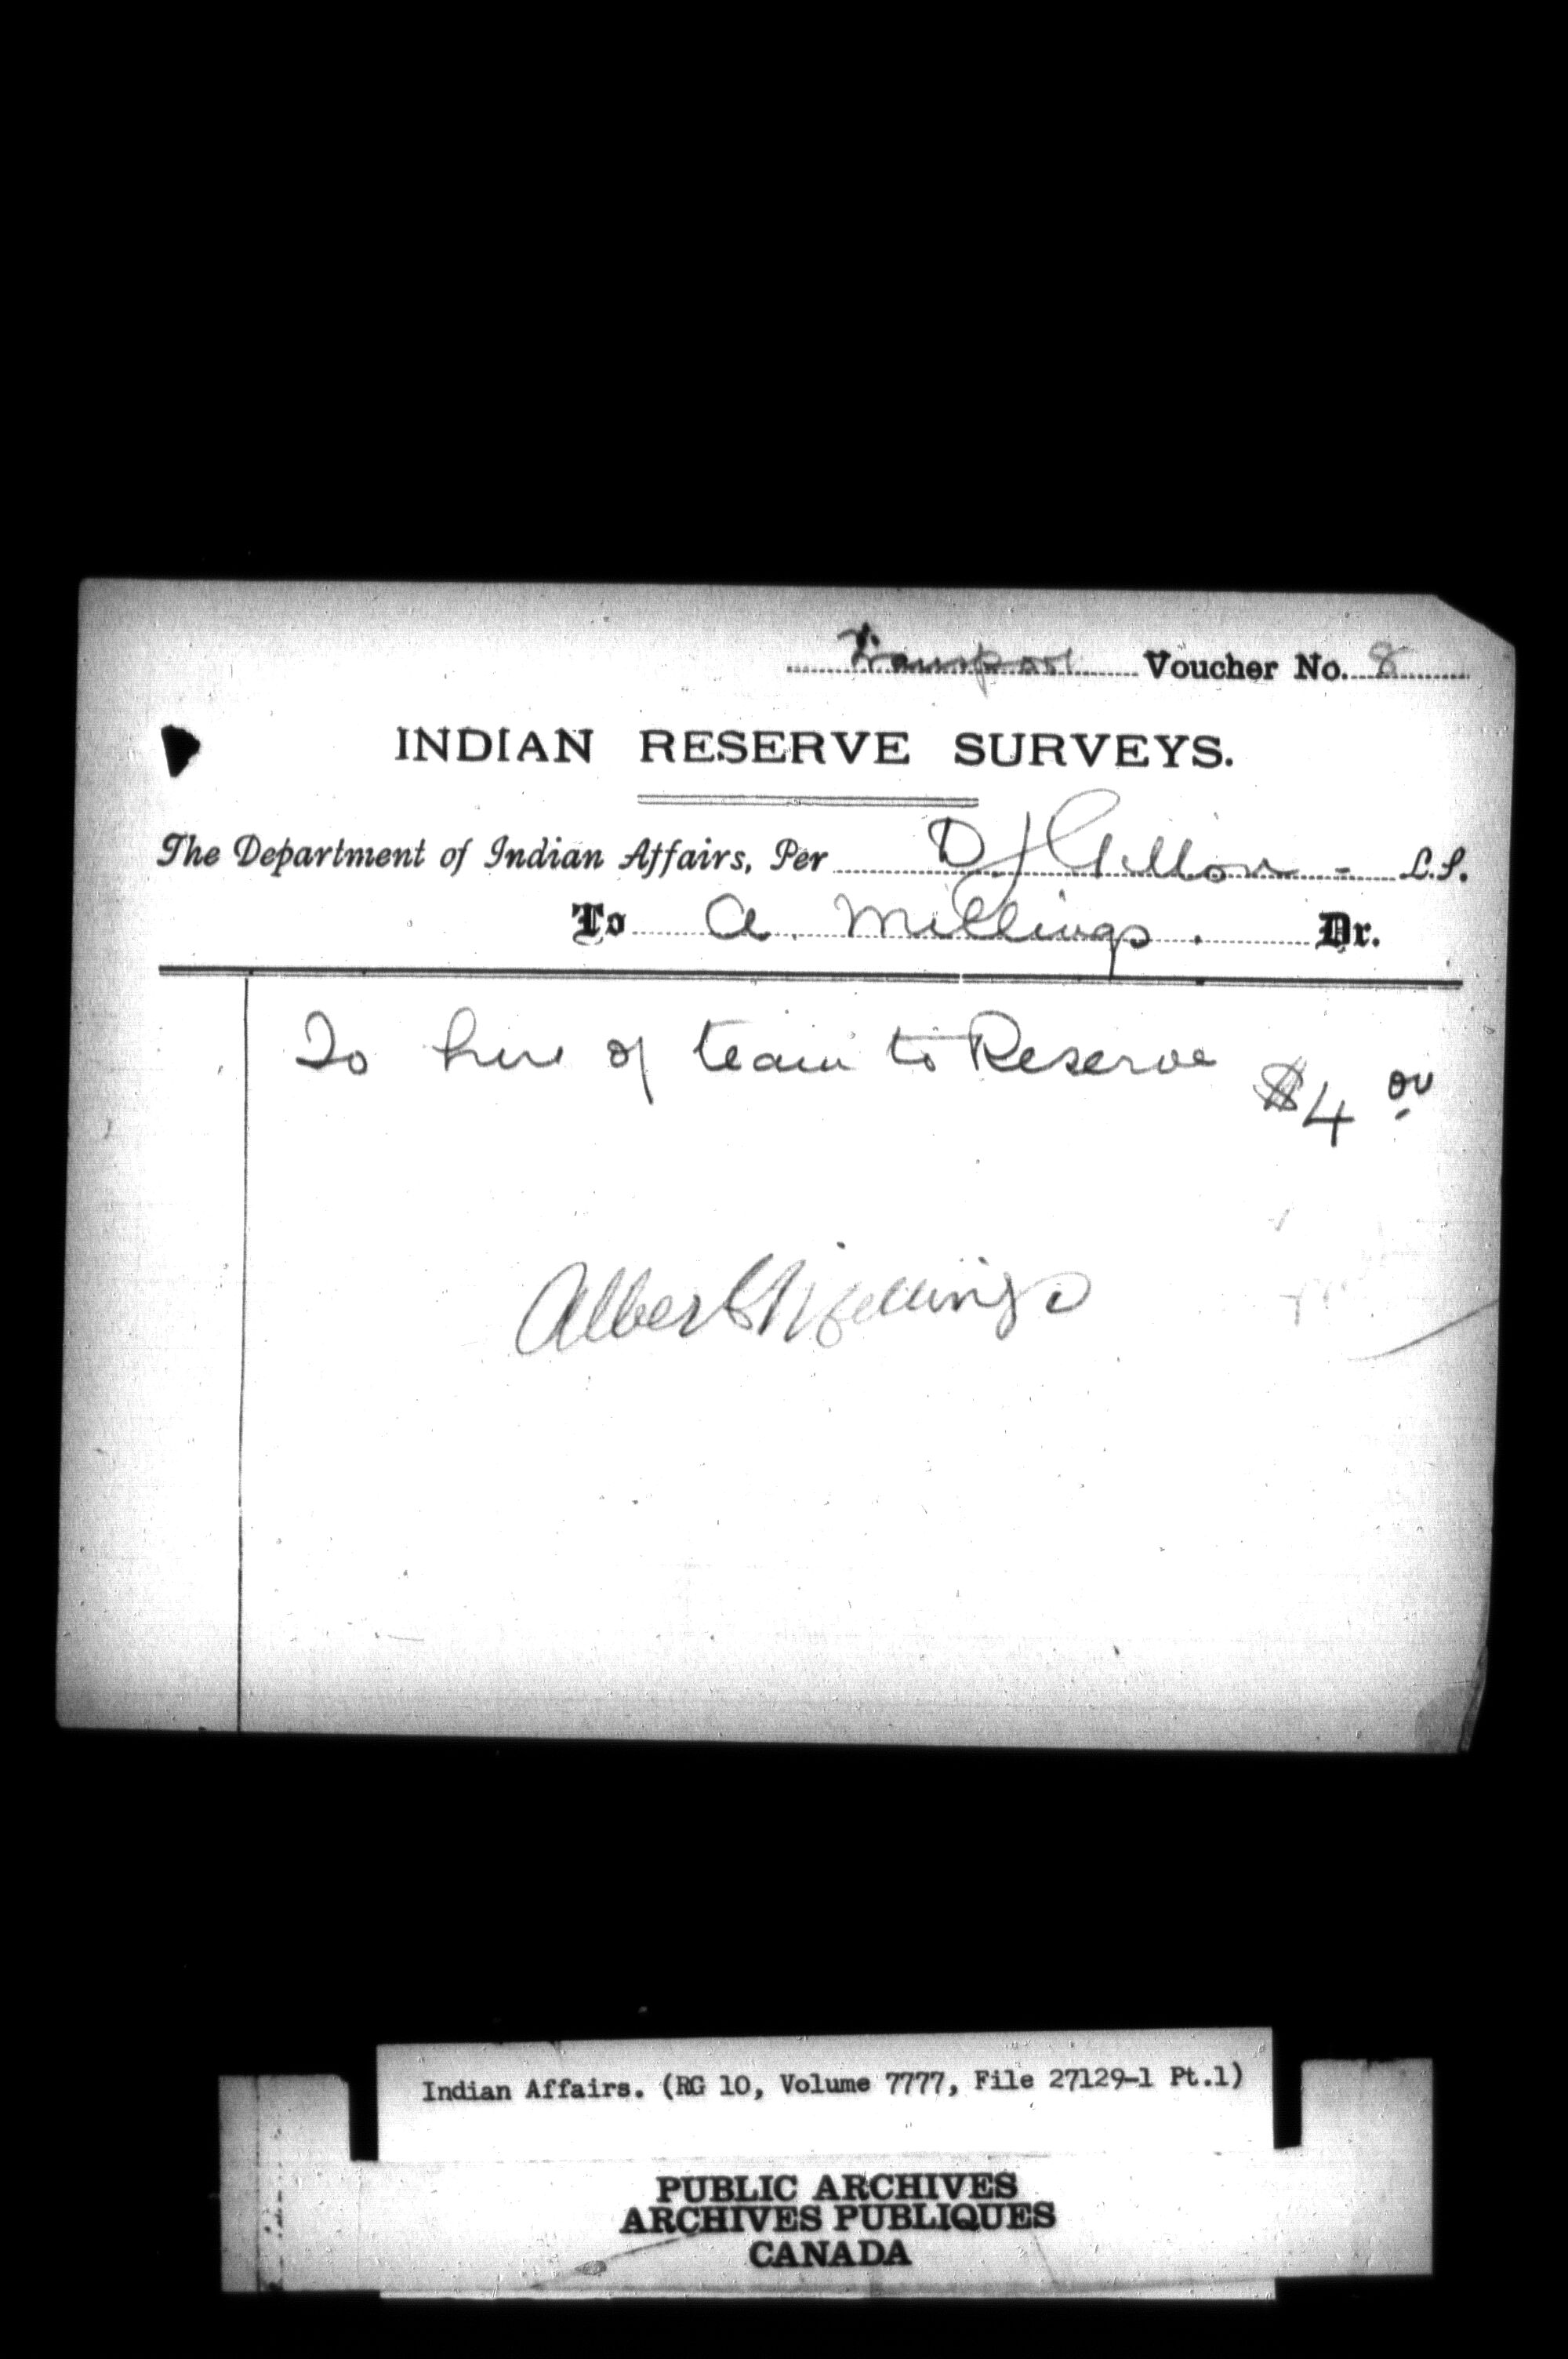 Transport Voucher No. 8
INDIAN RESERVE SURVEYS.
The Department of Indian Affairs, Per D J Gillon - L.S.
To A. Millings. Dr.
To hire of team to Reserve $4 00
Albert Millings
Indian Affairs. (RG 10, Volume 7777, File 27129-1 Pt.1)
PUBLIC ARCHIVES
ARCHIVES PUBLIQUES
CANADA